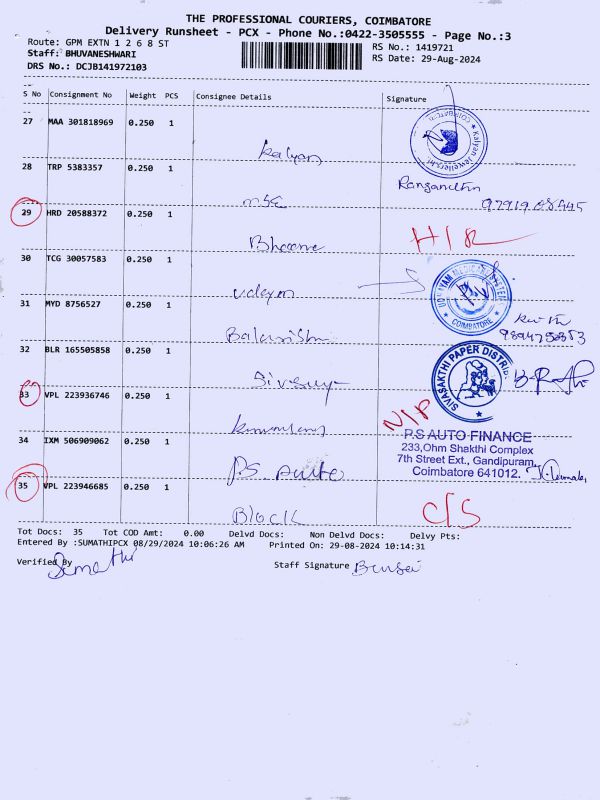 THE PROFESSIONAL COURIERS, COIMBATORE
Delivery Runsheet - PCX - Phone No.:0422-3505555 - Page No.:3
Route: GPM EXTN 1 2 6 8 ST
RS No.: 1419721
Staff: BHUVANESHWARI
RS Date: 29-Aug-2024
DRS No.: DCJB141972103
S No Consignment No Weight PCS Consignee Details Signature
27 MAA 301818969 0.250 1
Kalyan
28 TRP 5383357 0.250 1
Ranganathan
29 HRD 20588372 0.250 1
H/R
30 TCG 30057583 0.250 1
Udayam
COIMBATORE
31 MYD 8756527 0.250 1
32 BLR 165505858 0.250 1
SIVASAKTHI PAPER DISTRI
33 VPL 223936746 0.250 1
N/P
34 IXM 506909062 0.250 1
PS Auto
P.S AUTO FINANCE
233,Ohm Shakthi Complex
7th Street Ext., Gandipuram,
Coimbatore 641012.
35 VPL 223946685 0.250 1
Block
C/S
Tot Docs: 35 Tot COD Amt: 0.00 Delvd Docs: Non Delvd Docs: Delvy Pts:
Entered By :SUMATHIPCX 08/29/2024 10:06:26 AM Printed On: 29-08-2024 10:14:31
Verified By Sumathi
Staff Signature